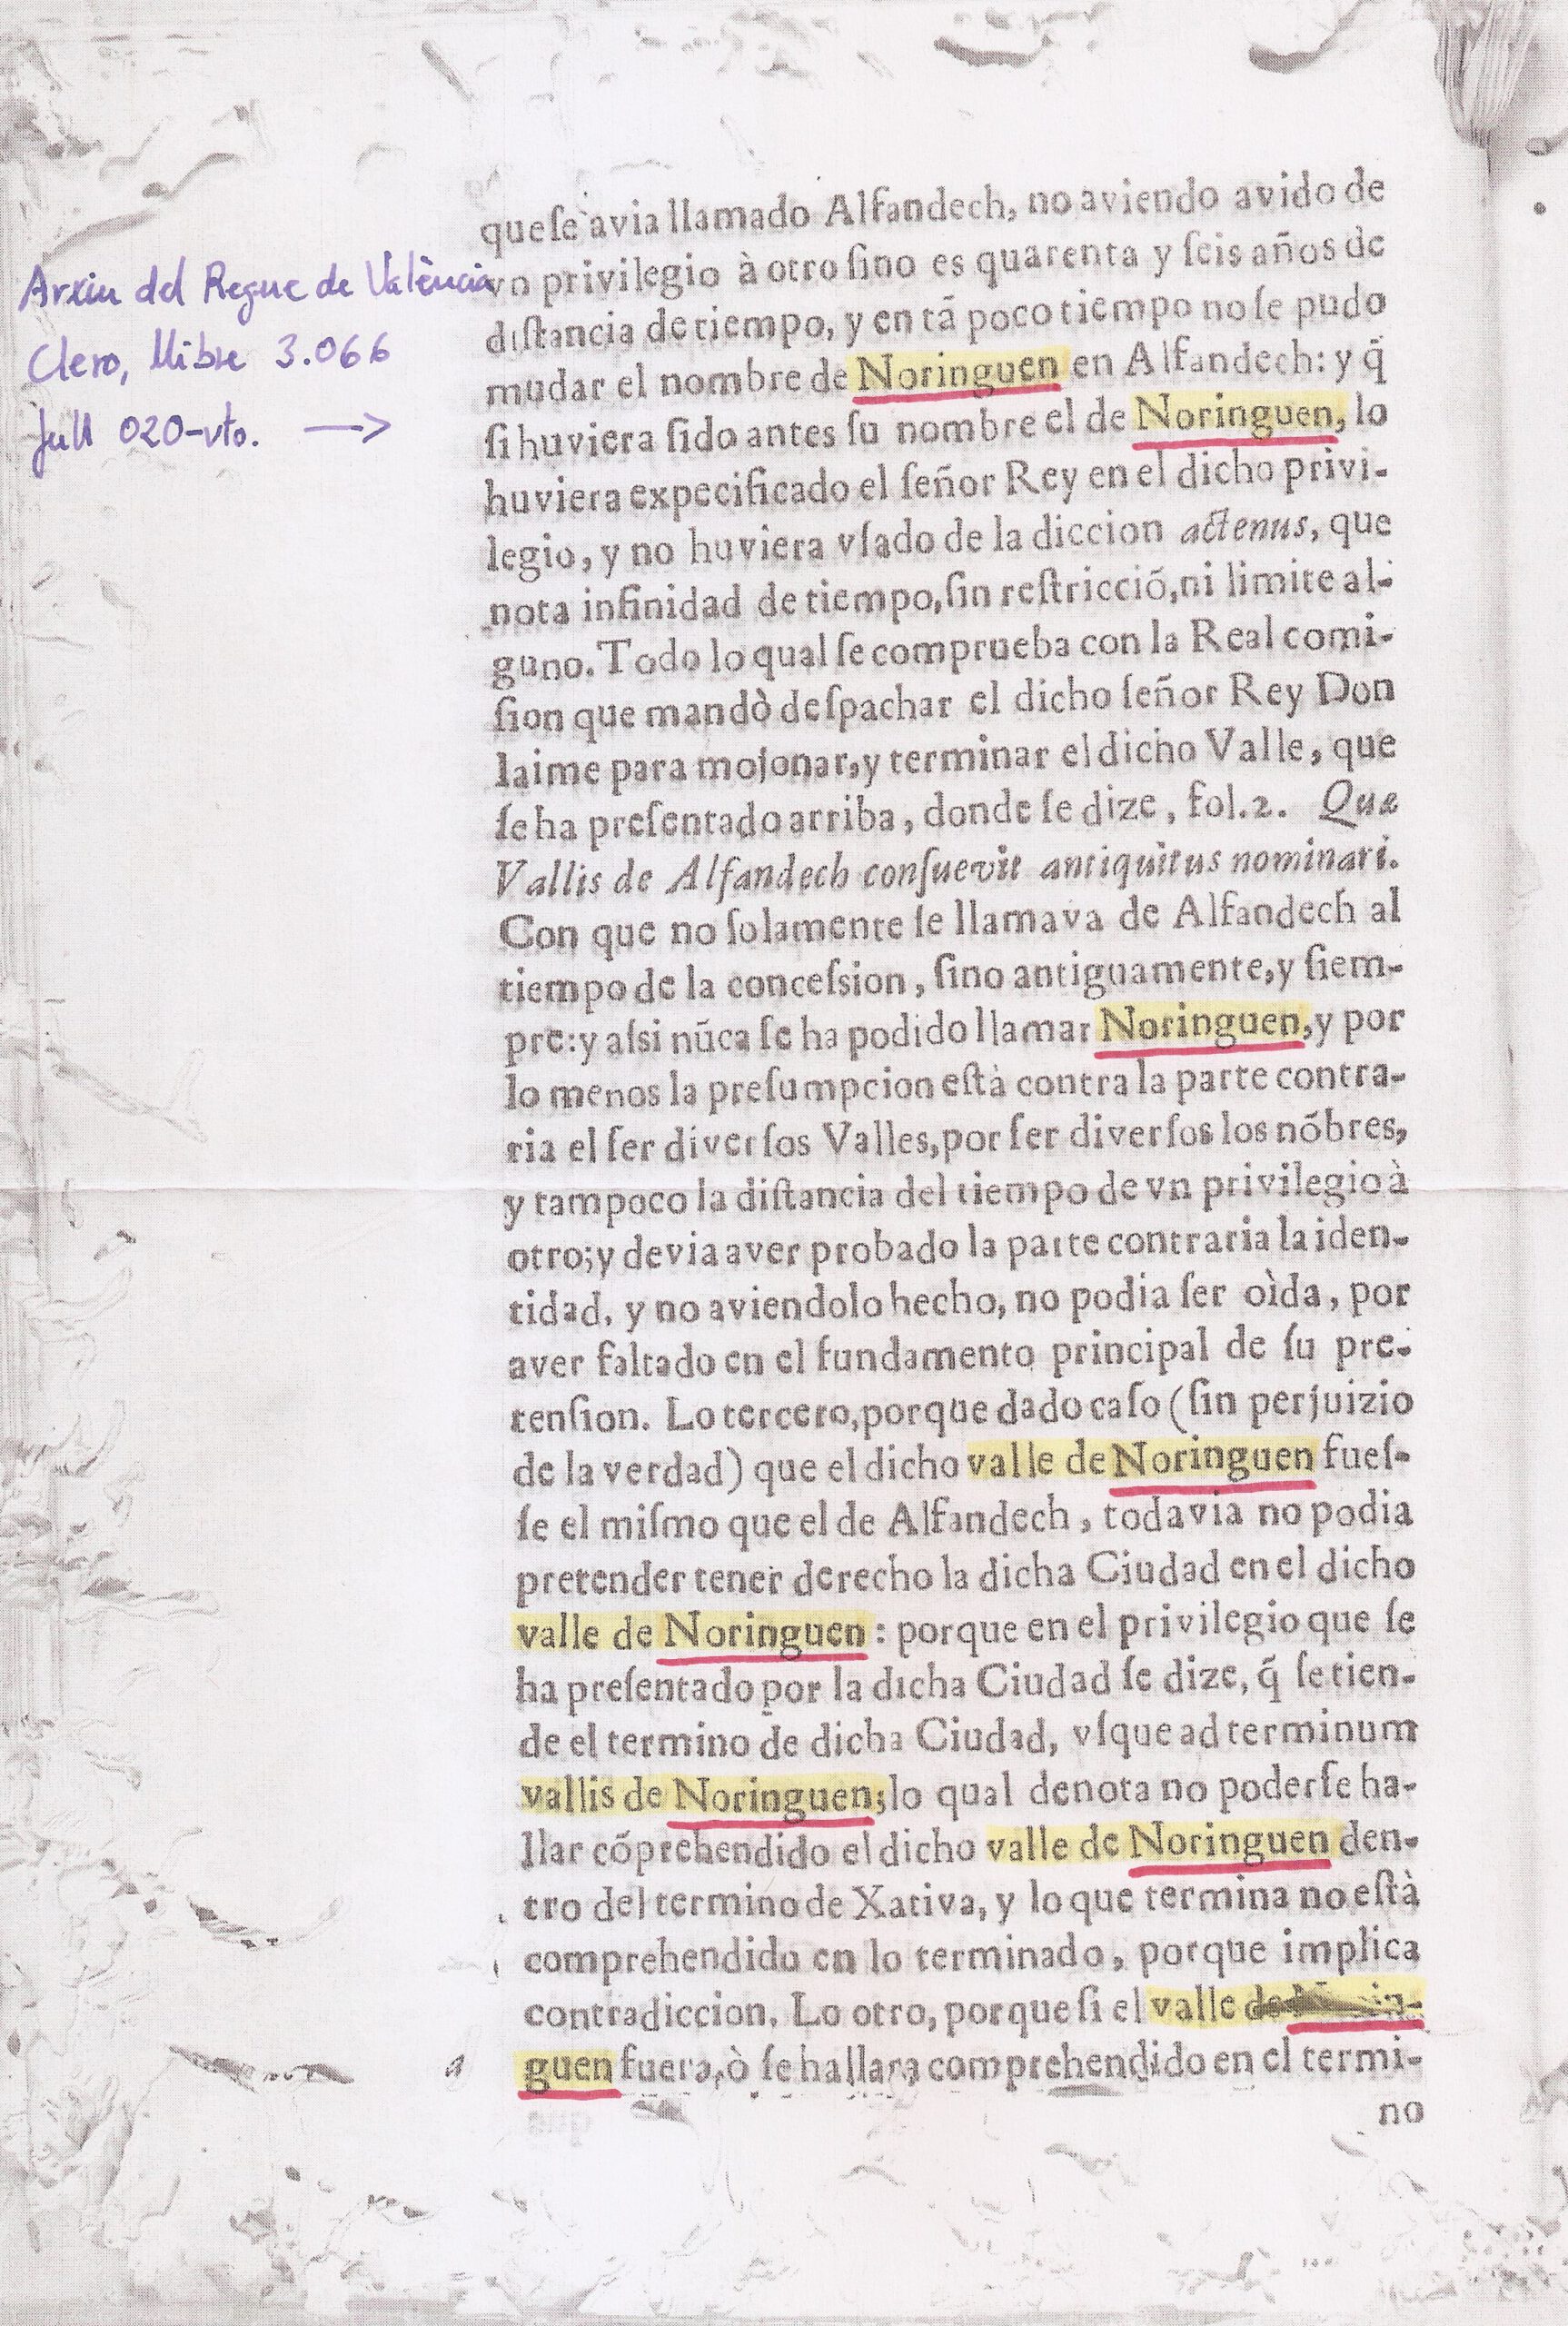 Arxiu del Regne de València
Clero, llibre 3.066
full 020-vto. →
que ſe avia llamado Alfandech, no aviendo avido de
vn privilegio à otro ſino es quarenta y ſeis años de
diſtancia de tiempo, y en tã poco tiempo no ſe pudo
mudar el nombre de Noringuen en Alfandech: y q̃
ſi huviera ſido antes ſu nombre el de Noringuen, lo
huviera expecificado el ſeñor Rey en el dicho privi-
legio, y no huviera vſado de la diccion actenus, que
nota infinidad de tiempo, ſin reſtricciõ, ni limite al-
guno. Todo lo qual ſe comprueba con la Real comi-
ſion que mandò deſpachar el dicho ſeñor Rey Don
Iaime para mojonar, y terminar el dicho Valle, que
ſe ha preſentado arriba, donde ſe dize, fol. 2. Quæ
Vallis de Alfandech conſuevit antiquitus nominari.
Con que no ſolamente ſe llamava de Alfandech al
tiempo de la conceſsion, ſino antiguamente, y ſiem-
pre: y aſsi nũca ſe ha podido llamar Noringuen, y por
lo menos la preſumpcion eſtà contra la parte contra-
ria el ſer diverſos Valles, por ſer diverſos los nõbres,
y tampoco la diſtancia del tiempo de vn privilegio à
otro; y devia aver probado la parte contraria la iden-
tidad, y no aviendolo hecho, no podia ſer oìda, por
aver faltado en el fundamento principal de ſu pre-
tenſion. Lo tercero, porque dado caſo (ſin perjuizio
de la verdad) que el dicho valle de Noringuen fueſ-
ſe el miſmo que el de Alfandech, todavia no podia
pretender tener derecho la dicha Ciudad en el dicho
valle de Noringuen: porque en el privilegio que ſe
ha preſentado por la dicha Ciudad ſe dize, q̃ ſe tien-
de el termino de dicha Ciudad, vſque ad terminum
vallis de Noringuen; lo qual denota no poderſe ha-
llar cõprehendido el dicho valle de Noringuen den-
tro del termino de Xativa, y lo que termina no eſtà
comprehendido en lo terminado, porque implica
contradiccion. Lo otro, porque ſi el valle de
guen fuera, ò ſe hallara comprehendido en el termi-
no